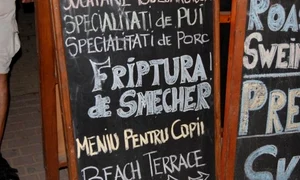 SPECIALITATI DE PUI
SPECIALITATI DE PORC
FRIPTURA!
de SMECHER
MENIU PENTRU COPII
BEACH TERRACE
ROA
SWEIN
PRE